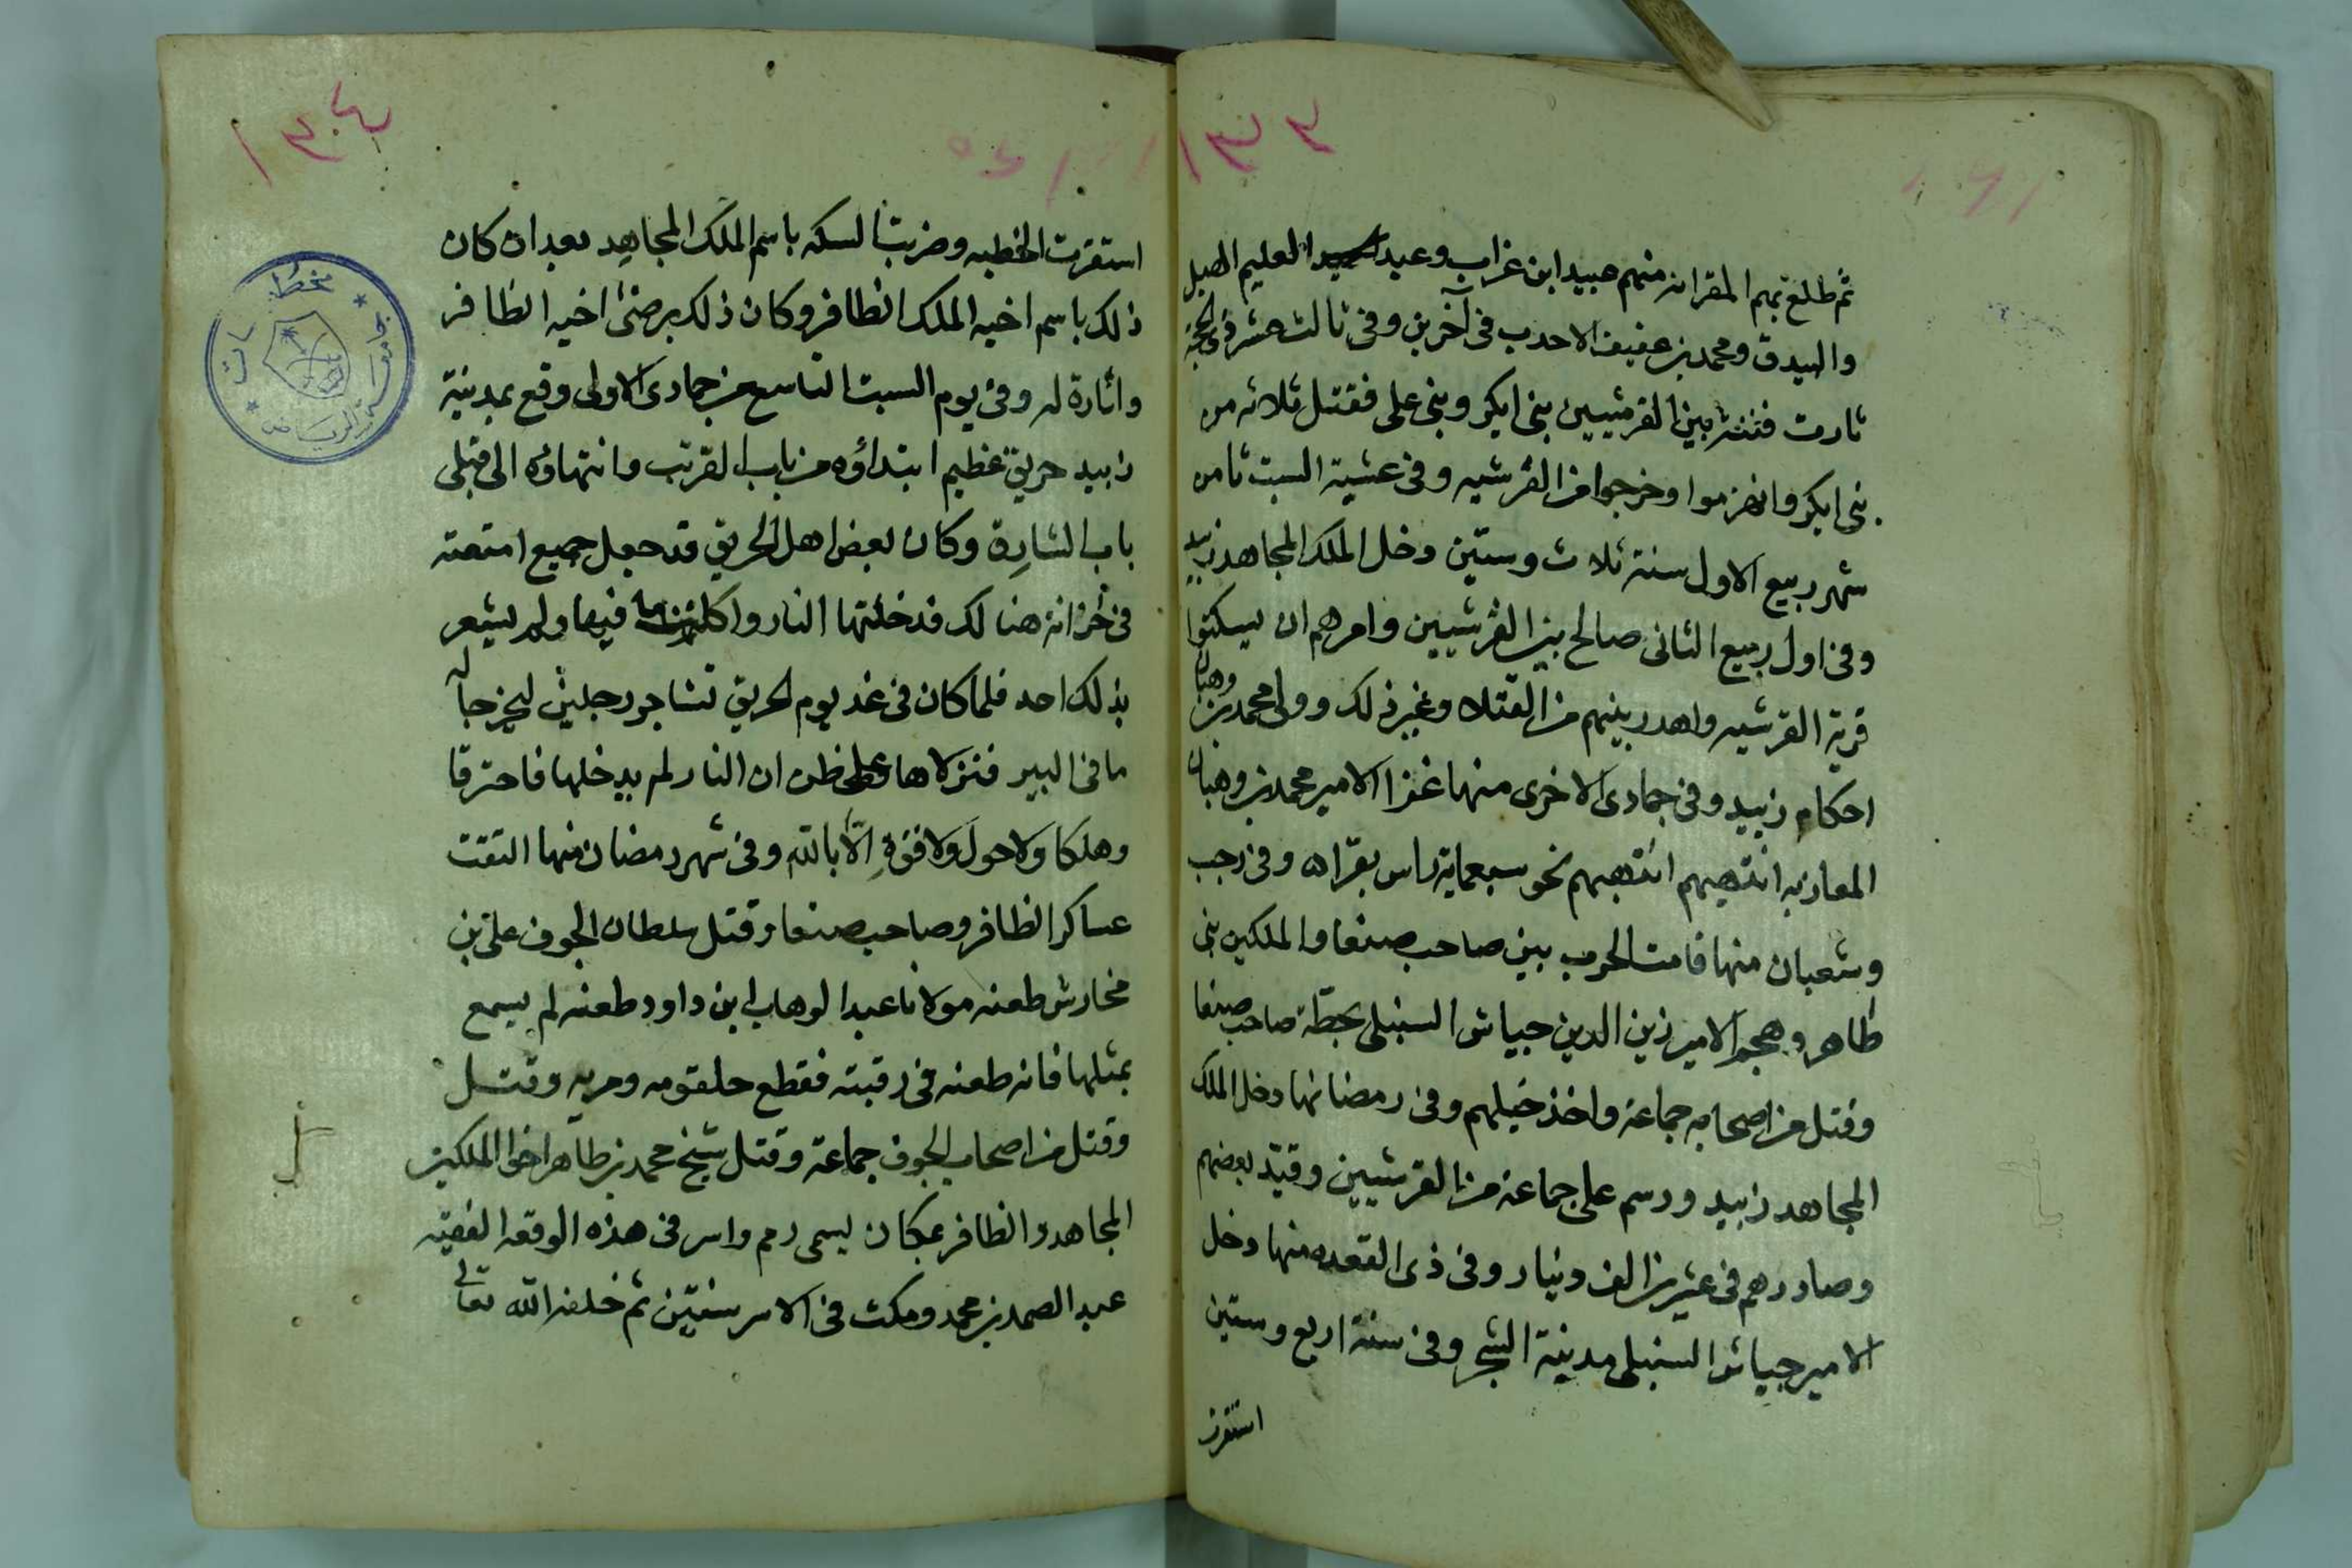 ١٣٣
ثم طلع بهم المقرانه منهم عبيد ابن غراب وعبد العليم الهبل
والبيدق ومحمد بن عفيف الاحدب في آخرين وفي ثالث عشر ذي الحجة
ثارت فتنة بين القرشيين بني ابكر وبني علي فقتل ثلاثه من
بني ابكر وانهزموا وخرجوا من القرشيه وفي عشية السبت ثامن
شهر ربيع الاول سنة ثلاث وستين دخل الملك المجاهد زبيد
وفي اول ربيع الثاني صالح بين القرشيين وامرهم ان يسكنوا
قرية القرشيه واهدر بينهم من القتلا وغير ذلك وولى محمد بن وهبان
احكام زبيد وفي جمادى الاخرى منها غزا الامير محمد بن وهبان
المعازبه انتهبهم انتهبهم نحو سبعماية راس بقراه وفي رجب
وشعبان منها قامت الحرب بين صاحب صنعا والملكين بني
طاهر وهجم الامير زين الدين جياش السنبلي بحطة صاحب صنعا
وقتل من اصحابه جماعة واخذ خيلهم وفي رمضانها دخل الملك
المجاهد زبيد ورسم على جماعة من القرشيين وقيد بعضهم
وصادرهم في عشرين الف دينار وفي ذي القعده منها دخل
الامير جياش السنبلي مدينة الشحر وفي سنة اربع وستين
استقرت
١٣٤
استقرت الخطبه وضربت السكه باسم الملك المجاهد بعد ان كان
ذلك باسم اخيه الملك الظافر وكان ذلك برضىٰ اخيه الظافر
واثارة له وفي يوم السبت التاسع من جمادى الاولى وقع بمدينة
زبيد حريق عظيم ابتداؤه من باب القرتب وانتهاؤه الى قبلي
باب الشارة وكان بعض اهل الحريق قد جعل جميع امتعته
في خزانة هنالك فدخلتها النار واكلت ما فيها ولم يشعر
بذلك احد فلما كان في غد يوم الحريق تشاجر رجلين ليخرجا له
ما في البير فنزلاها على ظن ان النار لم يدخلها فاحترقا
وهلكا ولا حول ولا قوة إلا بالله وفي شهر رمضان منها التقت
عساكر الظافر وصاحب صنعا وقتل سلطان الجوف علي بن
مخارش طعنه مولانا عبد الوهاب ابن داود طعنه لم يسمع
بمثلها فانه طعنه في رقبته فقطع حلقومه ومريه وقتل
وقتل من اصحاب الجوف جماعة وقتل شيخ محمد بن طاهر اخو الملكين
المجاهد والظافر بمكان يسمى رمم واسر في هذه الوقعه الفقيه
عبد الصمد بن محمد ومكث في الاسر سنتين ثم خلصه الله تعالى
جامعة الرياض
مخطوطات